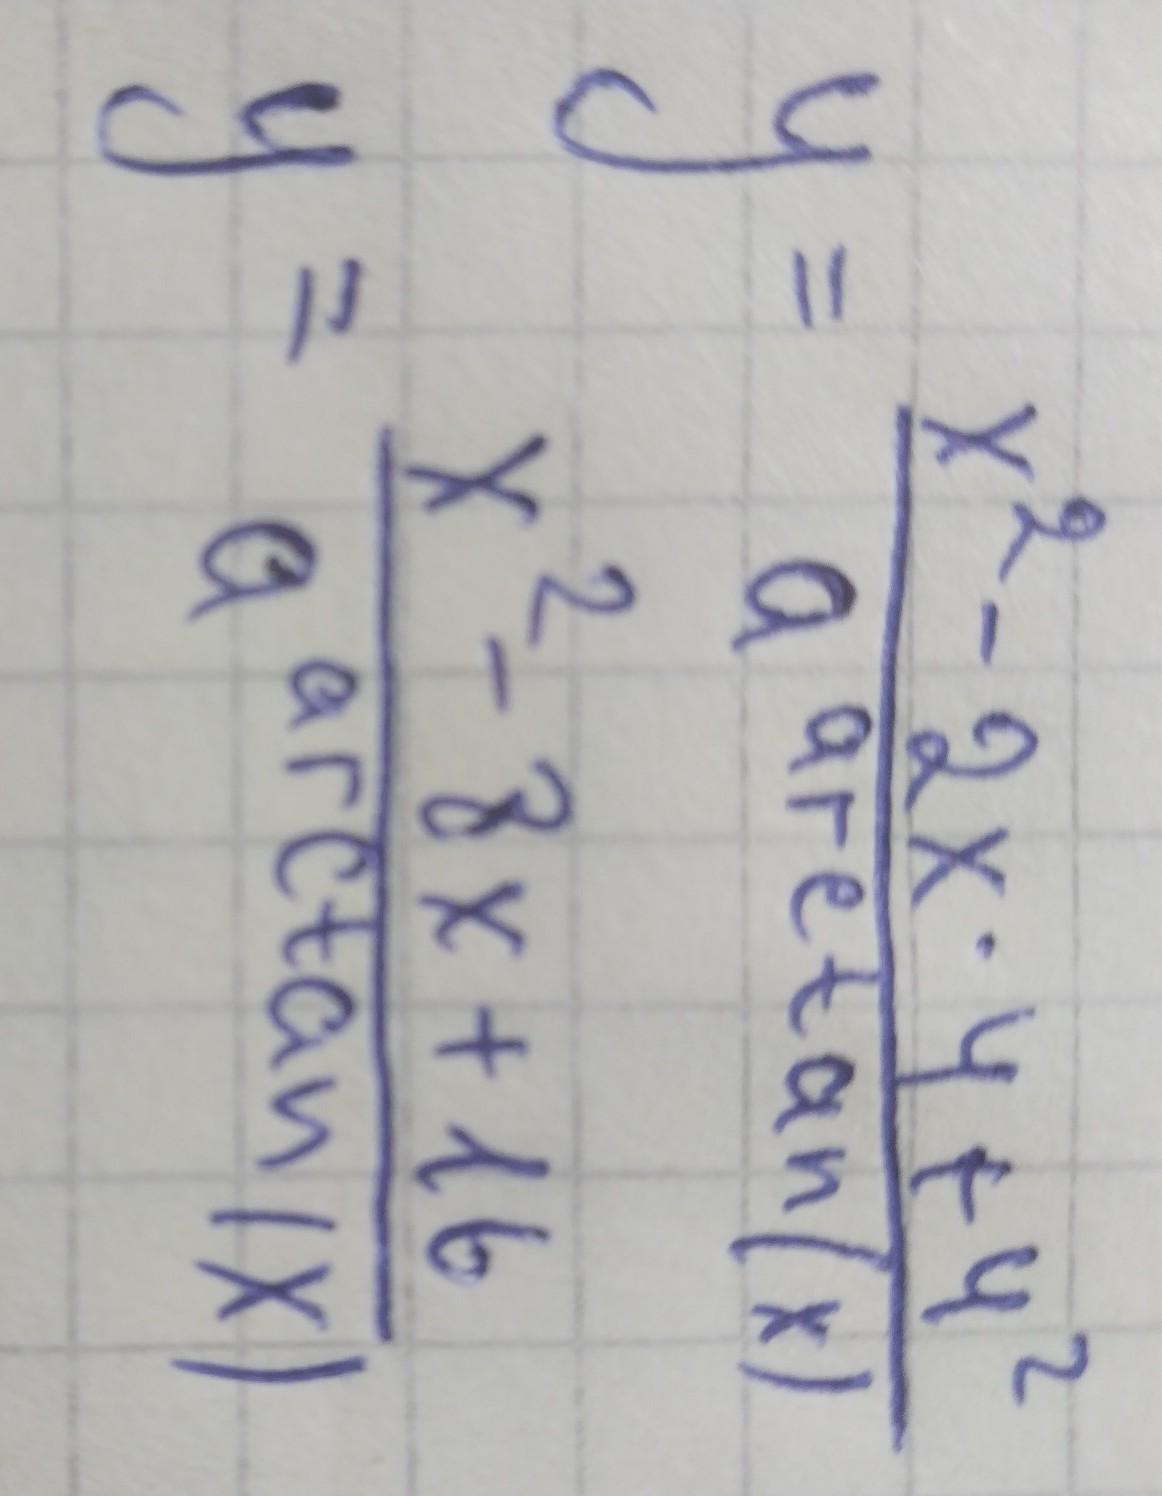 x² - 2x · 4 + 4²
y =
a arctan(x)
x² - 8x + 16
y =
a arctan(x)